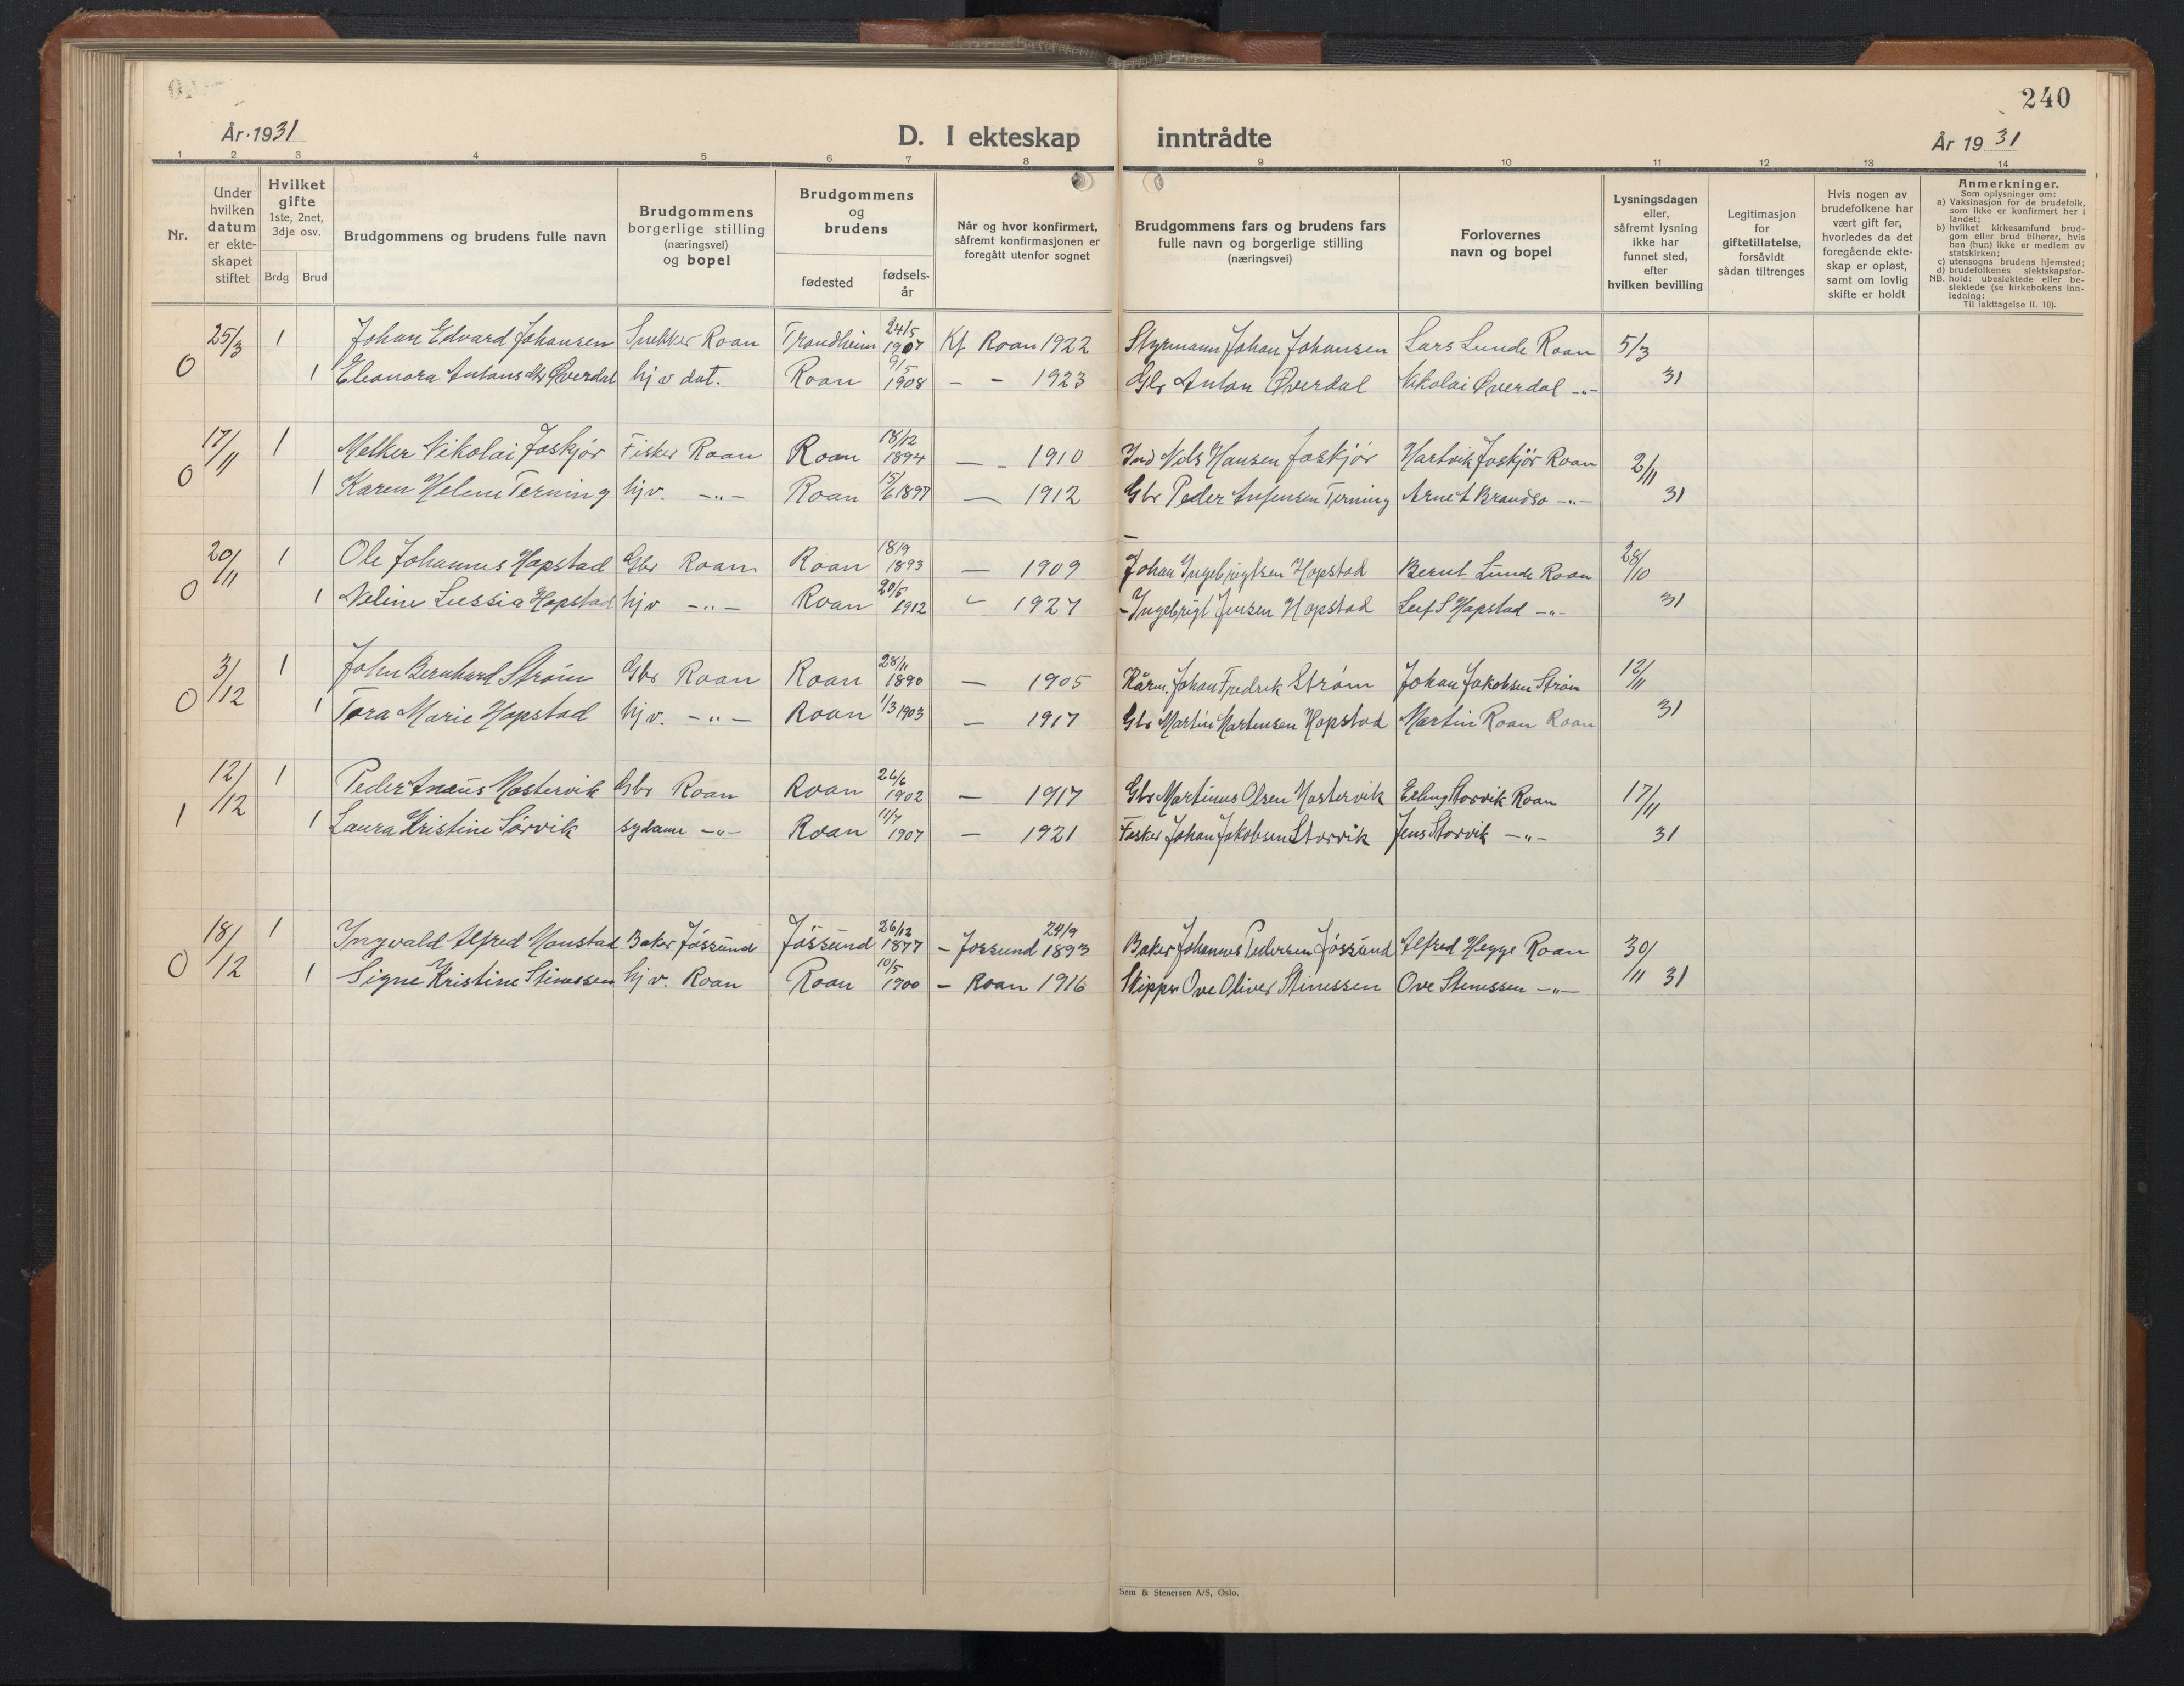 240
År 1931
D. I ekteskap inntrådte
År 1931
1 2 3 4 5 6 7 8 9 10 11 12 13 14
Nr.
Under hvilken datum er ekte-skapet stiftet
Hvilket gifte 1ste, 2net, 3dje osv.
Brdg Brud
Brudgommens og brudens fulle navn
Brudgommens borgerlige stilling (næringsvei) og bopel
Brudgommens og brudens
fødested
fødsels-år
Når og hvor konfirmert, såfremt konfirmasjonen er foregått utenfor sognet
Brudgommens fars og brudens fars fulle navn og borgerlige stilling (næringsvei)
Forlovernes navn og bopel
Lysningsdagen eller, såfremt lysning ikke har funnet sted, efter hvilken bevilling
Legitimasjon for giftetillatelse, forsåvidt sådan tiltrenges
Hvis nogen av brudefolkene har vært gift før, hvorledes da det foregående ekte-skap er opløst, samt om lovlig skifte er holdt
Anmerkninger.
Som oplysninger om:
a) Vaksinasjon for de brudefolk, som ikke er konfirmert her i landet;
b) hvilket kirkesamfund brud-gom eller brud tilhører, hvis han (hun) ikke er medlem av statskirken;
c) utensogns brudens hjemsted;
d) brudefolkenes slektskapsfor-hold: ubeslektede eller be-slektede (se kirkebokens inn-ledning:
NB. Til iakttagelse II. 10).
25/3 1 Johan Edvard Johansen Snekker Roan Trondheim 24/5 1907 Kf Roan 1922 Styrmann Johan Johansen Lars Lunde Roan 5/3
0 1 Eleonora Antonsdtr Øverdal hjv dat. Roan 9/5 1908 - - 1923 Gbr Anton Øverdal Nikolai Øverdal -"- 31
17/11 1 Melker Nikolai Foskjør Fisker Roan Roan 18/12 1894 — - 1910 Ind Nils Hansen Foskjør Hartvik Foskjør Roan 2/11
0 1 Karen Helene Terning hjv. -"- Roan 15/6 1897 — 1912 Gbr Peder Terning Arnet Brandsø -"- 31
20/11 1 Ole Johannes Hopstad Gbr Roan Roan 18/9 1893 — 1909 Johan Ingebrigtsen Hopstad Bernt Lunde Roan 28/10
0 1 Neline Lussia Hopstad hjv -"- Roan 20/5 1912 - 1927 - Ingebrigt Jensen Hopstad Leif S Hopstad -"- 31
3/12 1 John Bernhard Strøm Gbr Roan Roan 28/11 1890 — 1905 Kårm. Johan Fredrik Strøm Johan Jakobsen Strøm 12/11
0 1 Tora Marie Hopstad hjv. -"- Roan 1/3 1903 — 1917 Gbr Martin Martensen Hopstad Martin Roan Roan 31
12/12 1 Peder Hostervik Gbr Roan Roan 26/6 1902 — 1917 Gbr Martinus Olsen Hostervik Erling Storvik Roan 17/11
1 1 Laura Kristine Sørvik sydame -"- Roan 11/7 1907 — 1921 Fisker Johan Jakobsen Storvik Jens Storvik -"- 31
18/12 1 Ingvald Alfred Monstad Baker Jøssund Jøssund 26/12 1877 - Jossund 24/9 1893 Baker Johannes Pedersen Jøssund Alfred Hegge Roan 30/11
0 1 Signe Kristine Stinessen hjv. Roan Roan 10/5 1900 - Roan 1916 Skipper Ove Oliver Stinessen Ove Stenessen -"- 31
Sem & Stenersen A/S, Oslo.